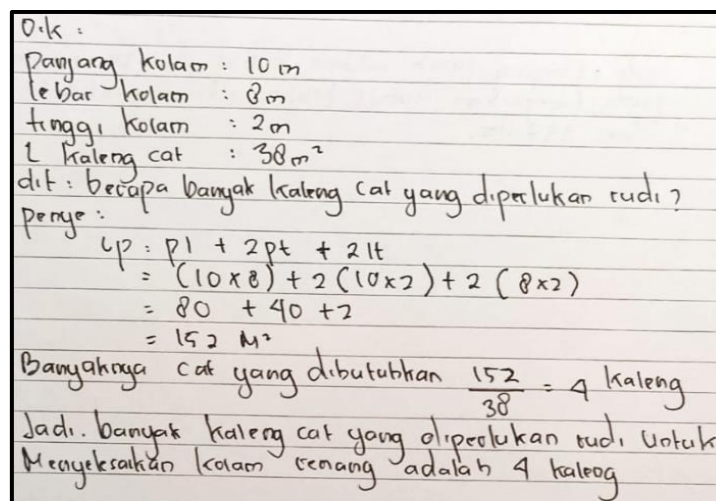 Dik :
Panjang kolam : 10 m
lebar kolam : 8m
tinggi kolam : 2m
1 kaleng cat : 38m²
dit : berapa banyak kaleng cat yang diperlukan rudi?
penye :
Lp = pl + 2pt + 2lt
= (10x8) + 2(10x2) + 2 (8x2)
= 80 + 40 + 2
= 152 M²
Banyaknya cat yang dibutuhkan 152/38 = 4 kaleng
Jadi. banyak kaleng cat yang diperlukan rudi untuk
Menyelesaikan kolam renang adalah 4 kaleng